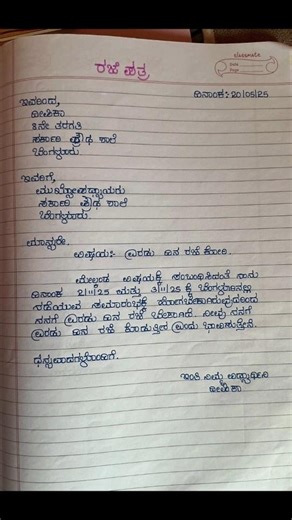 classmate
Date
Page
ರಜೆ ಪತ್ರ
ದಿನಾಂಕ:-20/05/25
ಇವರಿಂದ,
ದೀಪಿಕಾ
8ನೇ ತರಗತಿ
ಸರ್ಕಾರಿ ಪ್ರೌಢ ಶಾಲೆ
ಬೆಂಗಳೂರು
ಇವರಿಗೆ,
ಮುಖ್ಯೋಪಾಧ್ಯಾಯರು
ಸರ್ಕಾರಿ ಪ್ರೌಢ ಶಾಲೆ
ಬೆಂಗಳೂರು
ಮಾನ್ಯರೇ,
ವಿಷಯ:- ಎರಡು ದಿನ ರಜೆ ಕೋರಿ.
ಮೇಲ್ಕಂಡ ವಿಷಯಕ್ಕೆ ಸಂಬಂಧಿಸಿದಂತೆ ನಾನು
ದಿನಾಂಕ 2/11/25 ಮತ್ತು 3/11/25 ಕ್ಕೆ ಬೆಂಗಳೂರಿನಲ್ಲಿ
ನಡೆಯುವ ಸಮಾರಂಭಕ್ಕೆ ಹೋಗಬೇಕಾಗಿರುವುದರಿಂದ
ನನಗೆ ಎರಡು ದಿನ ರಜೆ ಬೇಕಾಗಿದೆ. ನೀವು ನನಗೆ
ಎರಡು ದಿನ ರಜೆ ಕೊಡುತ್ತೀರಿ ಎಂದು ಭಾವಿಸುತ್ತೇನೆ.
ಧನ್ಯವಾದಗಳೊಂದಿಗೆ.
ಇಂತಿ ನಿಮ್ಮ ವಿದ್ಯಾರ್ಥಿನಿ
ದೀಪಿಕಾ